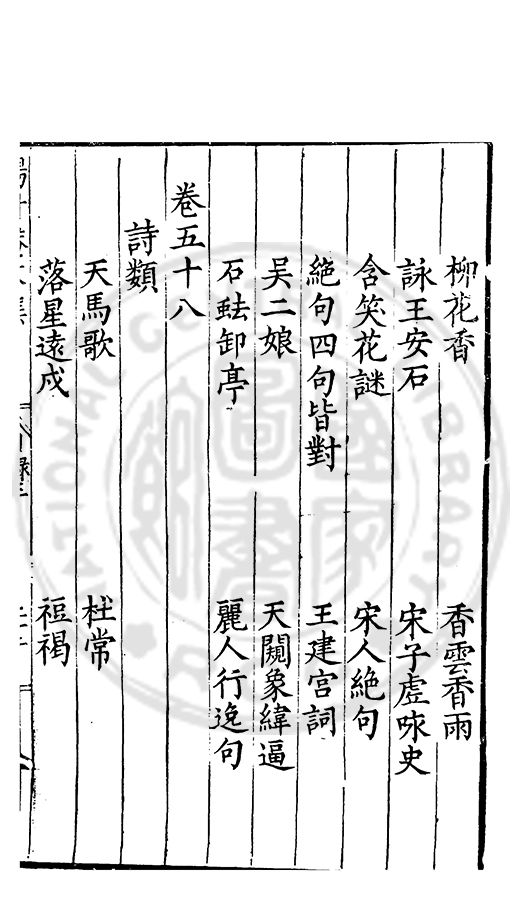 柳花香　香雲香雨
詠王安石　宋子虛咏史
含笑花謎　宋人絶句
絶句四句皆對　王建宫詞
吴二娘　天闚象緯逼
石䖨卸亭　麗人行逸句
卷五十八
詩類
天馬歌　杜常
落星遠戍　裋褐